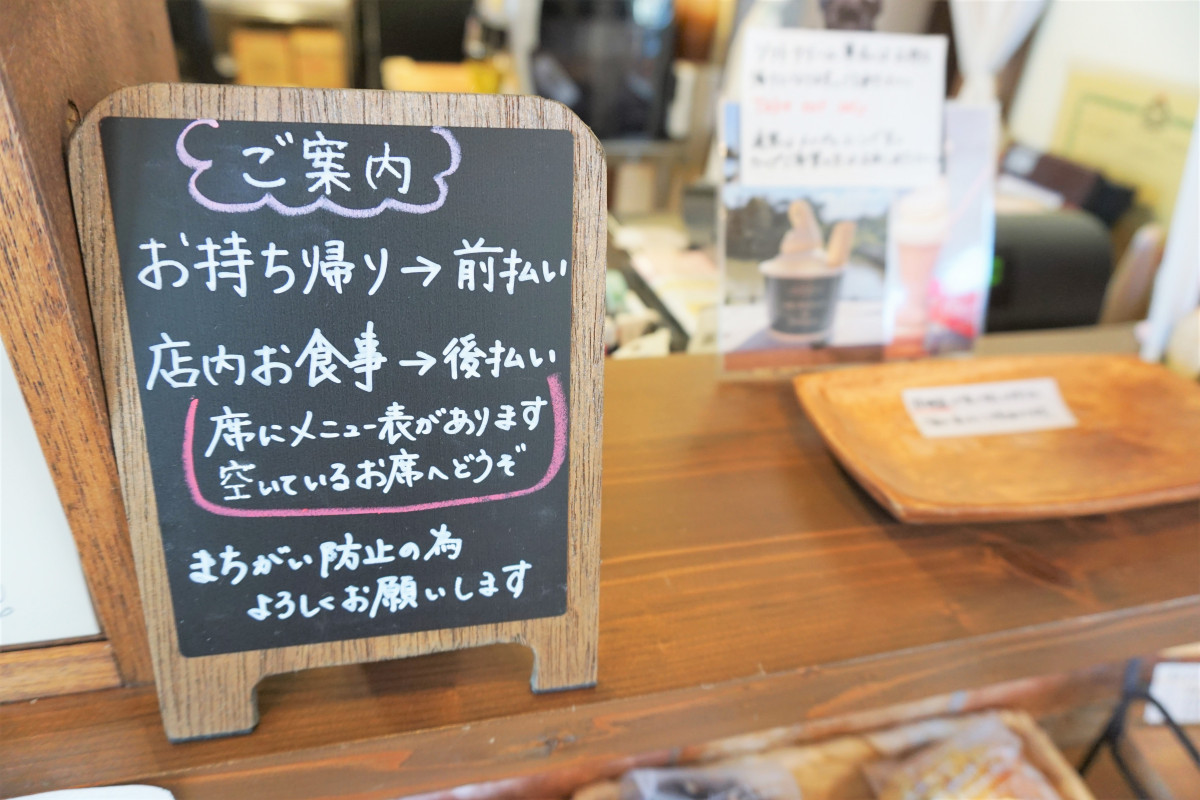 ご案内
お持ち帰り→前払い
店内お食事→後払い
席にメニュー表があります
空いているお席へどうぞ
まちがい防止の為
よろしくお願いします